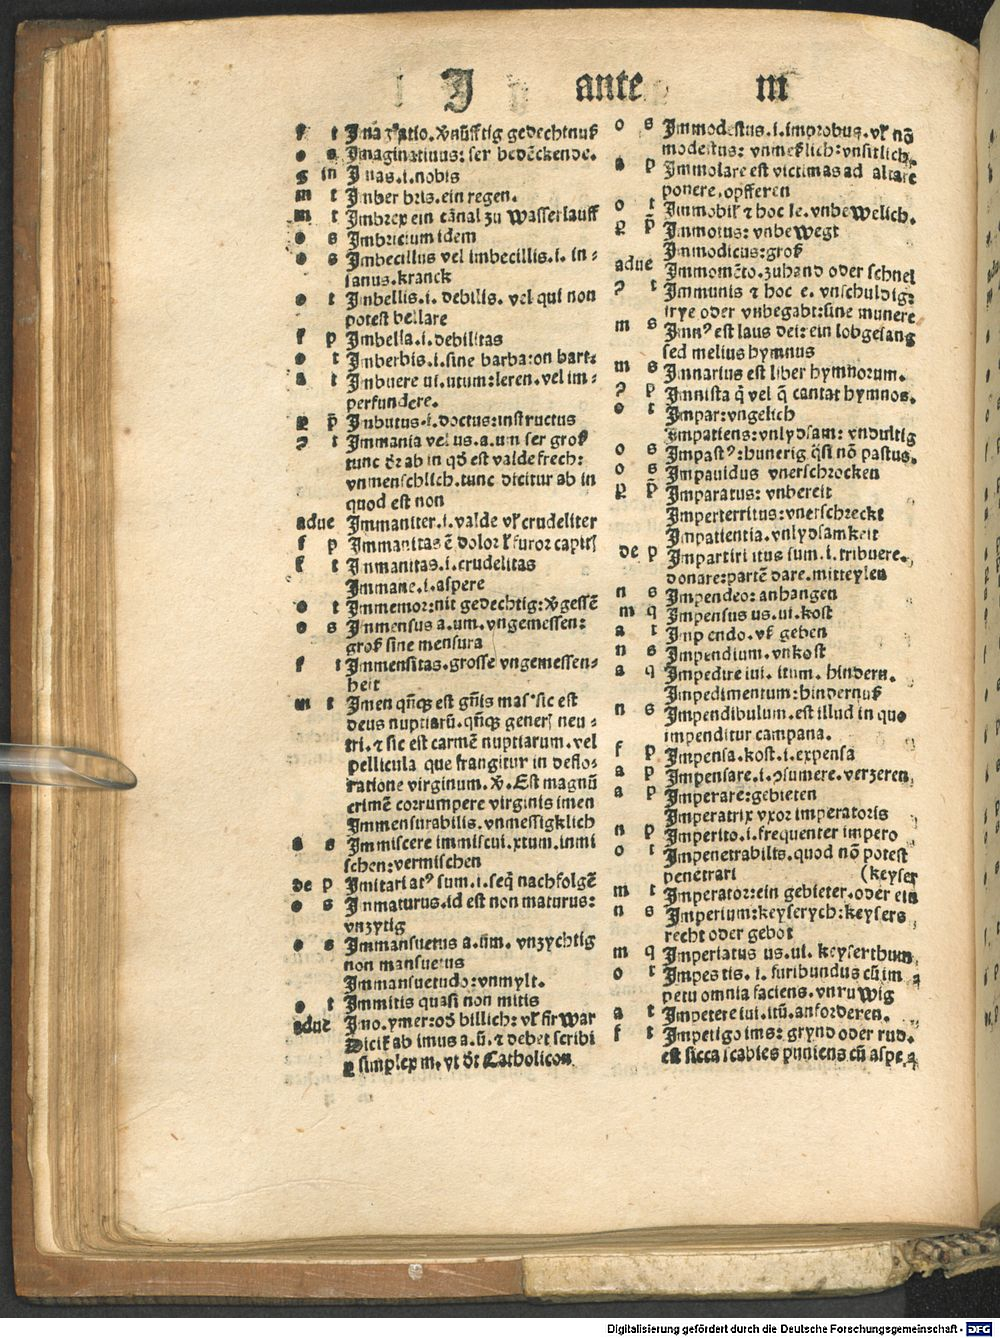 J ante m
f t Imagīatio. v̄nüfftig gedechtnuß
o s Imaginatiuus: ser bedēckende.
g in Imas .i. nobis
m t Imber bris. ein regen.
m t Imbrex ein cānal zu Wasserlauff
o s Imbricium idem
o s Imbecillus vel imbecillis .i. in-
sanus. kranck
o t Imbellis .i. debilis. vel qui non
potest bellare
f p Imbella .i. debilitas
o t Imberbis .i. sine barba: on bart:
a t Imbuere ui. utum: leren. vel im-
perfundere.
p p̄ Imbutus .i. doctus: instructus
ꝰ t Immania vel us. a. um ser groß
tunc d̄r ab in qd̄ est valde frech:
vnmenschlich. tunc dicitur ab in
quod est non
adue Immaniter .i. valde vl̄ crudeliter
f p Immanitas ē dolor l̄ furor capitꝭ
f t Inmanitas .i. crudelitas
Immane .i. aspere
o t Immemor: nit gedechtig: v̄gessē
o s Inmensus a. um. vngemessen:
groß sine mensura
f t Immensitas. grosse vngemessen-
heit
m t Imen qn̄qꝫ est gn̄is mas. sic est
deus nuptiarū. qn̄qꝫ generꝭ neu-
tri. ⁊ sic est carmē nuptiarum. vel
pellicula que frangitur in deflo-
ratione virginum. v̄. Est magnū
crimē corrumpere virginis imen
Immensurabilis. vnmessigklich
a s Immiscere immiscui. xtum. inmi
schen: vermischen
de p Imitari atꝰ sum .i. seq̄ nachfolgē
o s Inmaturus. id est non maturus:
vnzytig
o s Immansuetus a. ūm. vnzychtig
non mansuetus
Inmansuetudo: vnmylt.
o t Immitis quasi non mitis
adue Imo. ymer: od̄ billich: vl̄ fir War
Dicit̄ ab imus a. ū. ⁊ debet scribi
p simplex m. vt dt Catholicon
o s Immodestus .i. improbus. vl̄ nō
modestus: vnmeßlich: vnsitlich.
a p Immolare est victimas ad altare
ponere. opfferen
o t Immobil̄ ⁊ hoc le. vnbeWelich.
p p̄ Immotus: vnbeWegt
Inmodicus: groß
adue Immomēto. zuhand oder schnel
ꝰ t Immunis ⁊ hoc e. vnschuldig:
frye oder vnbegabt: sine munere
m s Imnꝰ est laus dei: ein lobgesang
sed melius hymnus
m s Imnarius est liber hymnorum.
ꝰ p Imnista q̄ vel q̄ cantat hymnos.
o t Impar: vngelich
Impatiens: vnlydsam: vndultig
o s Impastꝰ: hunerig q̄si nō pastus.
o s Impauidus vnerschrocken
p p̄ Imparatus: vnbereit
Imperterritus: vnerschreckt
Impatientia. vnlydsamkeit
de p Impartiri itus sum .i. tribuere.
donare: partē dare. mitteylen
n s Impendeo: anhangen
m q Impensus us. ui. kost
a t Impendo. vß geben
n s Impendium. vnkost
a q Impedire iui. itum. hindern.
Impedimentum: hindernuß
n s Impendibulum. est illud in quo
impenditur campana.
f p Impensa. kost .i. expensa
a p Impensare .i. ↄsumere. verzeren
a p Imperare: gebieten
Imperatrix vxor imperatoris
n p Imperito .i. frequenter impero
o t Impenetrabilis. quod nō potest
penetrari (keyser
m t Imperator: ein gebieter. oder ein
n s Imperium: keyserych: keysers
recht oder gebot
m q Imperiatus us. ui. keyserthum
o t Impestis .i. furibundus cū im
petu omnia faciens. vnruWig
a t Impetere iui. itū. anforderen.
f t Impetigo ims: grynd oder rud.
est sicca scabies pungens cū aspe
Digitalisierung gefördert durch die Deutsche Forschungsgemeinschaft - DFG